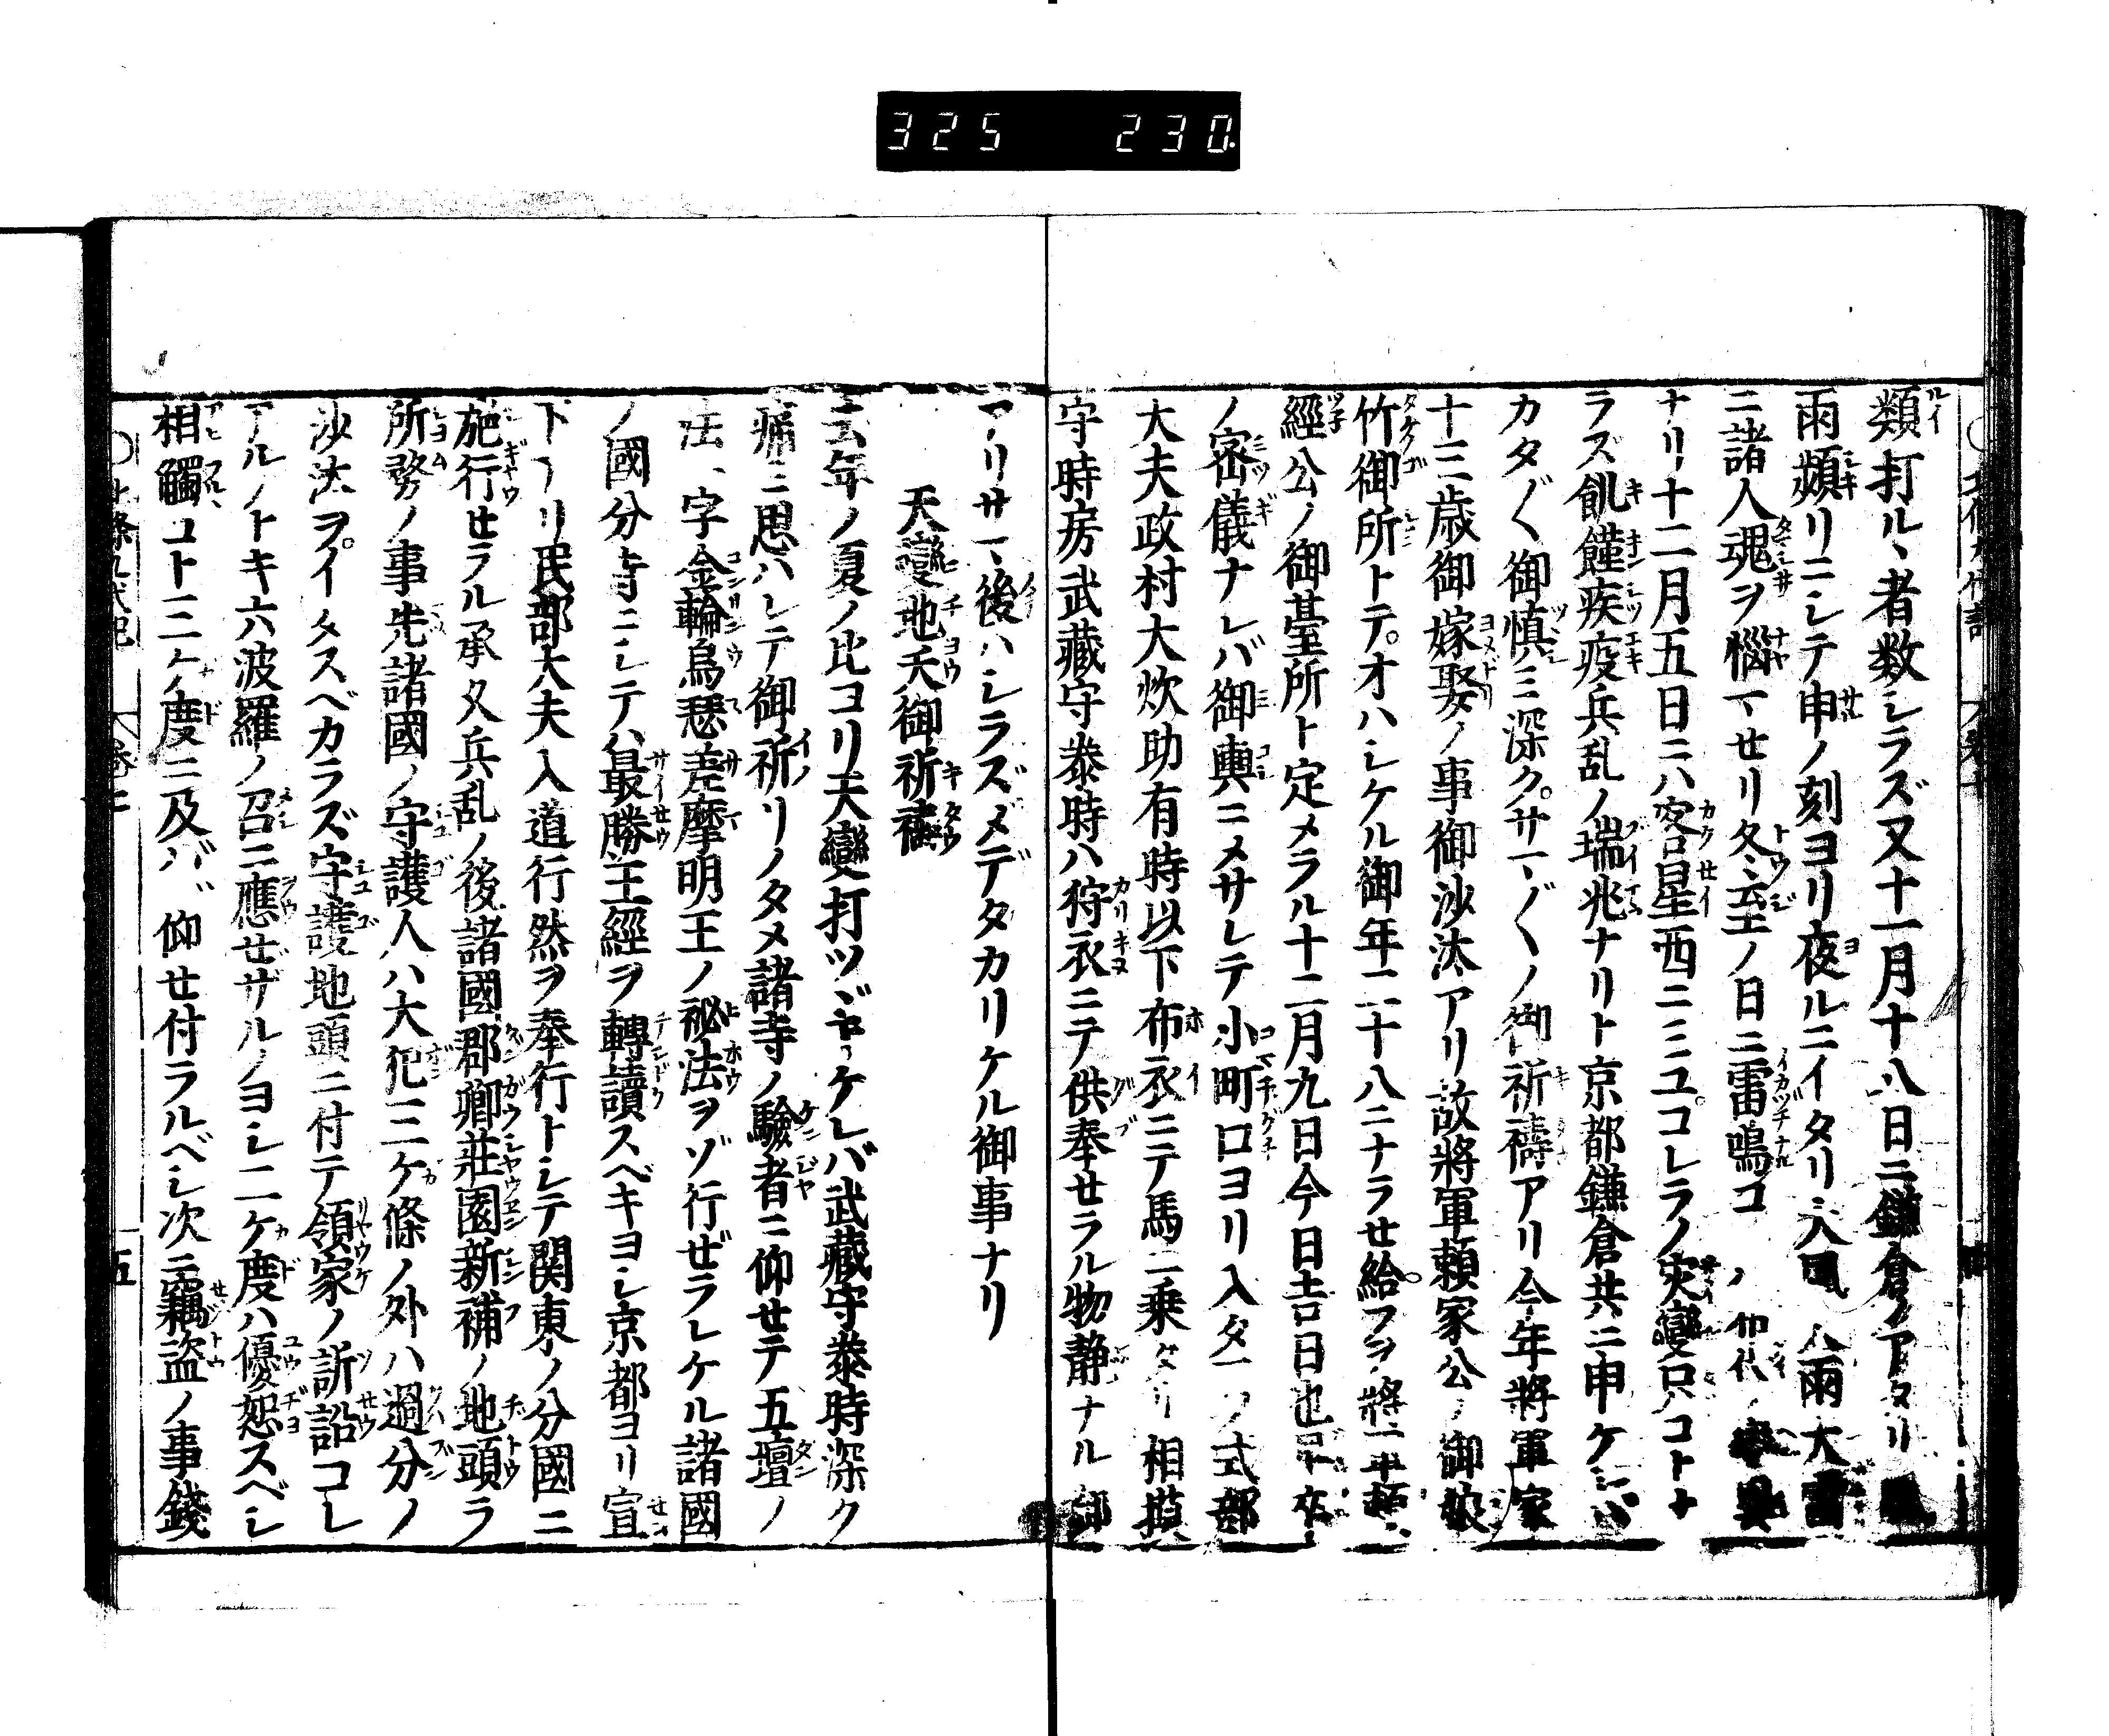 325 230
類打ル丶者数シラズ又十一月十八日ニ鎌倉ノアタリ
雨頻リニシテ申ノ刻ヨリ夜ルニイタリ大風 雨大雷
ニ諸人魂ヲ惱マセリ冬至ノ日ニ雷鳴コ
ナリ十二月五日ニハ客星西ニミユコレラノ災變只コトナ
ラズ飢饉疾疫兵乱ノ瑞兆ナリト京都鎌倉共ニ申ケレバ
カタ〴〵御慎ミ深クサマ〴〵ノ御祈禱アリ今年將軍家
十三歳御嫁娶ノ事御沙汰アリ故將軍頼家公ノ御娘
竹御所トテオハシケル御年二十八ニナラせ給フヲ將軍頼
經公ノ御䑓所ト定メラル十二月九日今日吉日也
ノ密儀ナレバ御輿ニメサレテ小町口ヨリ入タマフ式部
大夫政村大炊助有時以下布衣ニテ馬ニ乗タリ相摸
守時房武藏守泰時ハ狩衣ニテ供奉せラル物静ナル御
アリサマ後ハシラズメデタカリケル御事ナリ
天變地夭御祈禱
去年ノ夏ノ比ヨリ天變打ツヾキケレバ武藏守泰時深ク
痛ミ思ハレテ御祈リノタメ諸寺ノ驗者ニ仰せテ五壇ノ
法一字金輪烏瑟差摩明王ノ祕法ヲゾ行ぜラレケル諸國
ノ國分寺ニシテハ最勝王經ヲ轉讀スベキヨシ京都ヨリ宣
下アリ民部大夫入道行然ヲ奉行トシテ関東ノ分國ニ
施行せラル承久兵乱ノ後諸國郡鄕莊園新補ノ地頭ラ
所務ノ事先諸國ノ守護人ハ大犯三ケ條ノ外ハ過分ノ
沙汰ヲイタスベカラズ守護地頭ニ付テ領家ノ訴訟コレ
アルノトキ六波羅ノ召ニ應ぜザルノヨシ二ケ度ハ優恕スベシ
相觸ルヽコト三ケ度ニ及バヾ仰せ付ラルベシ次ニ竊盗ノ事錢
○北條九代記 卷七 五